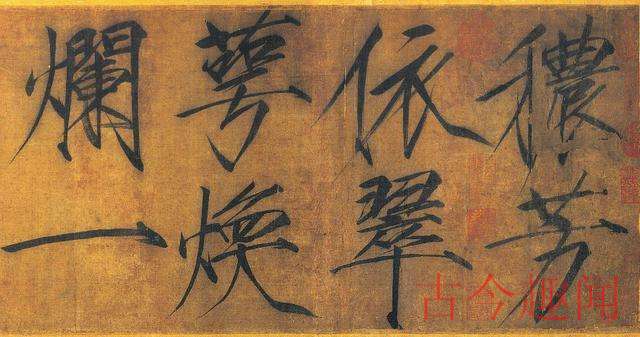 穠芳
依翠
萼煥
爛一
古今趣闻